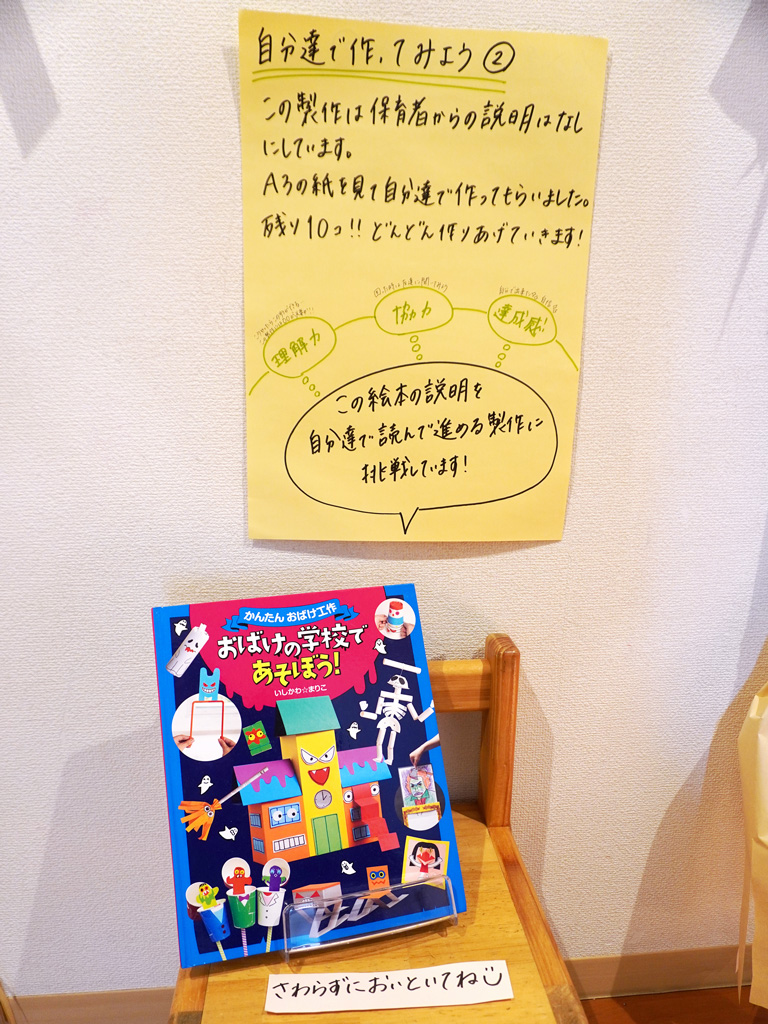 自分達で作ってみよう②
この製作は保育者からの説明はなし
にしています。
A3の紙を見て自分達で作ってもらいました。
残り10コ!! どんどん作りあげていきます!
理解力
協力
達成感
この絵本の説明を
自分達で読んで進める製作に
挑戦しています!
かんたん おばけ工作
おばけの学校で
あそぼう!
いしかわ☆まりこ
さわらずにおいといてね